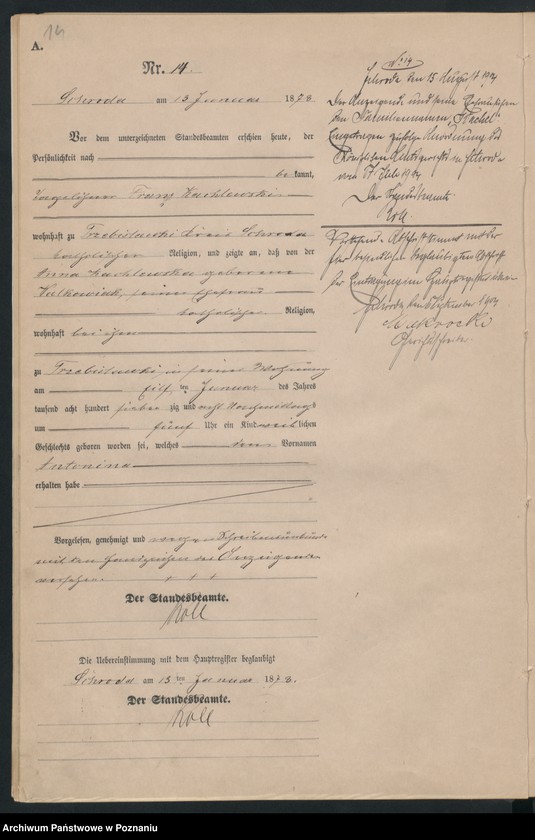 A.
14
Nr. 14.
Schroda am 15 Januar 1878.
Vor dem unterzeichneten Standesbeamten erschien heute, der
Persönlichkeit nach
be kannt,
Franz Kachlewski
wohnhaft zu Trzebislawki Kreis Schroda
katholischer Religion, und zeigte an, daß von der
Anna Kachlewska geborenen
Walkowiak, seiner Ehefrau
katholischer Religion,
wohnhaft bei ihm
zu Trzebislawki in seiner Wohnung
am elf ten Januar des Jahres
tausend acht hundert sieben zig und acht Vormittags
um fünf Uhr ein Kind weiblichen
Geschlechts geboren worden sei, welches den Vornamen
Antonina
erhalten habe
Vorgelesen, genehmigt und wegen Schreibensunkunde
mit den Handzeichen des Anzeigenden
versehen. + + +
Der Standesbeamte.
Roll
Die Uebereinstimmung mit dem Hauptregister beglaubigt
Schroda am 15 ten Januar 1878.
Der Standesbeamte.
Roll
No 14
Schroda den 15. August 1904
Der Anzeigende und seine
den Familiennamen
Eingetragen zufolge Anordnung des
Königlichen Amtsgerichts in Schroda
vom 17. Juli 1904
Der Standesbeamte
Vorstehende Abschrift stimmt mit der
beglaubigten Abschrift
der Eintragung im Hauptregister überein
Schroda den September 1904
Makowski
Gerichtsschreiber
Archiwum Państwowe w Poznaniu